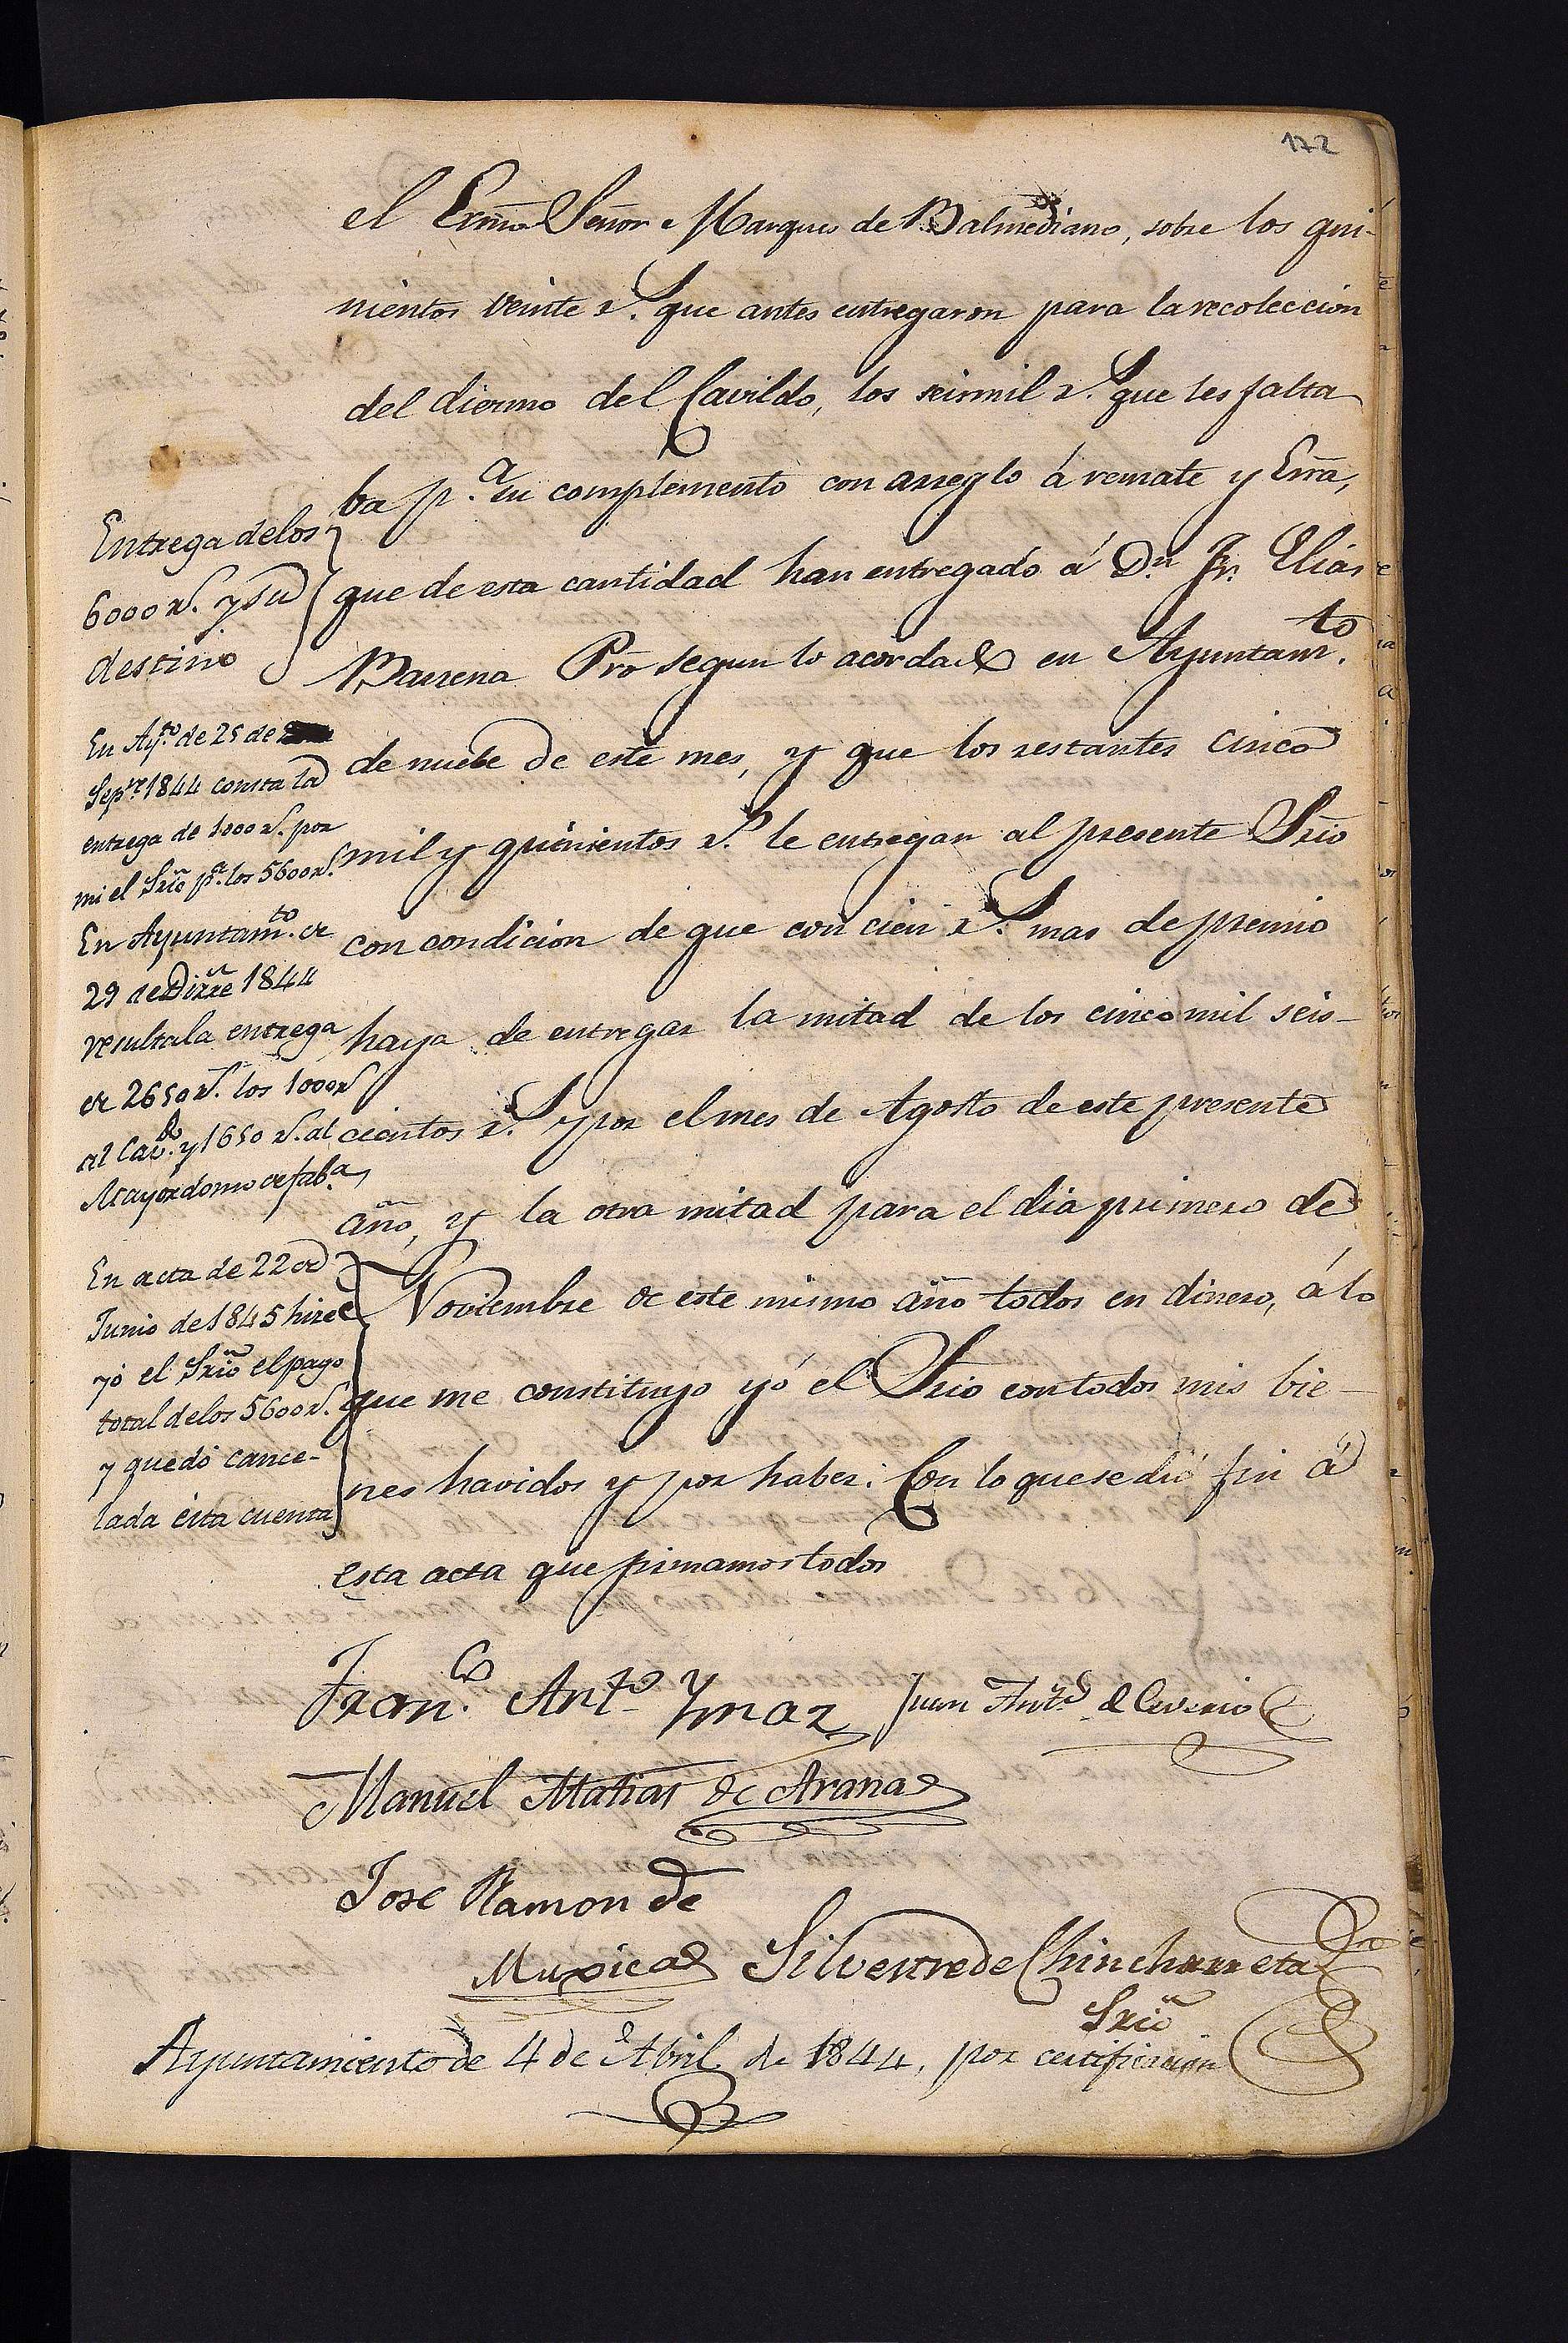 172
el Exmo Señor Marques de Balmediano, sobre los qui-
nientos veinte r.s que antes entregaron para la recoleccion
del diezmo del Cavildo, los seismil r.s que les falta
ba p.a su complemento con arreglo á remate y Essra,
que de esta cantidad han entregado á D.n Fr. Elias
Barrena Pro segun lo acordado en Ayuntam.to
de nuebe de este mes, y que los restantes cinco
mil y quinientos r.s le entregan al presente Srio
con condicion de que con cien r.s mas de premio
haya de entregar la mitad de los cinco mil seis-
cientos r.s y por el mes de Agosto de este presente
año, y la otra mitad para el dia primero de
Noviembre de este mismo año todos en dinero, á lo
que me constituyo yó el Srio con todos mis bie-
nes havidos y por haber. Con lo que se dió fin á
esta acta que firmamos todos
Entrega delos
6000 r.s y su
destino
En Ay.to de 25 de
Sep.re 1844 consta la
entrega de 1000 r.s por
mi el Srio p.a los 5600 r.s
En Ayuntam.to de
29 de Dizre 1844
resulta la entrega
de 2650 r.s los 1000 r.s
al Cav.do y 1650 r.s al
Mayordomo de fab.a
En acta de 22 de
Junio de 1845 hize
yó el Srio el pago
total delos 5600 r.s
y quedó cance-
lada esta cuenta
Fran.co Ant.o Ymaz Juan Ant.o de Ceverio
Manuel Matias de Arana
Jose Ramon de
Muxica Silvestre de Chinchurreta
Srio
Ayuntamiento de 4 de Abril de 1844, por certificacion